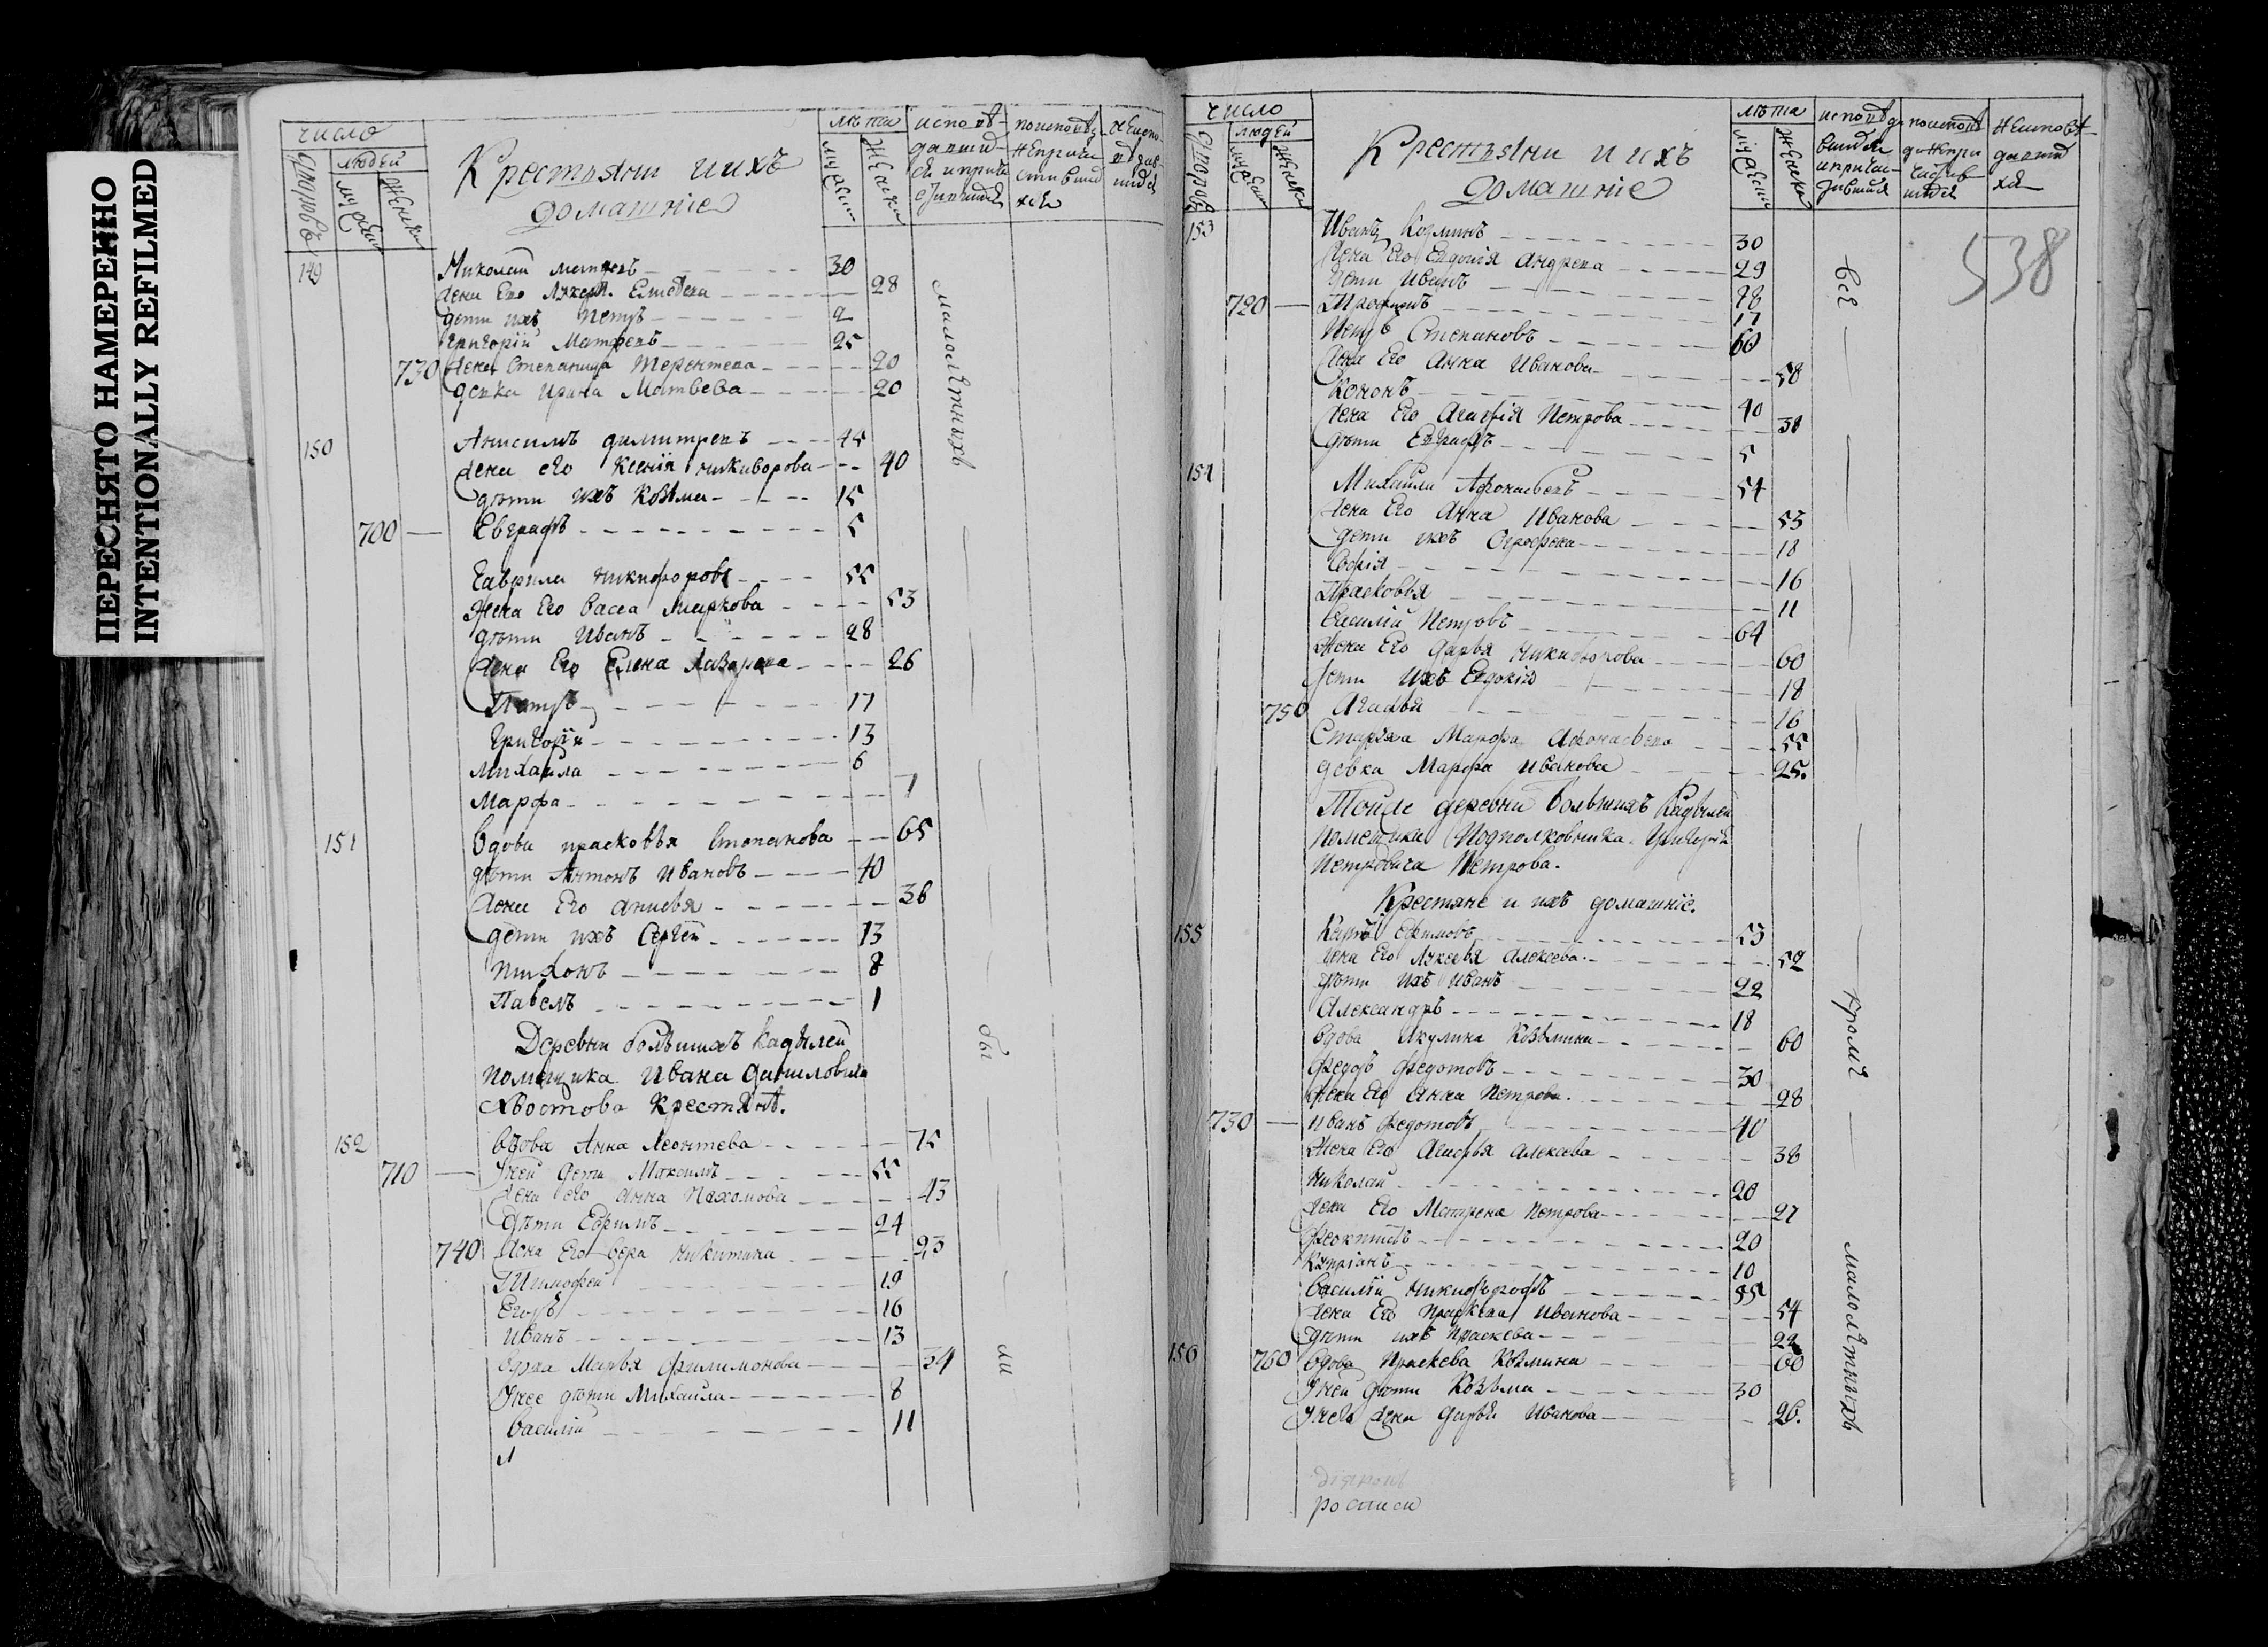 ПЕРЕСНЯТО НАМЕРЕННО
INTENTIONALLY REFILMED
число
дворовъ
людей
мужеск
женска
Крестьяни и ихъ
домашнiе
лѣта
мужеск
женска
исповѣ-
давшiи-
ся и прича
стившiися
по исповѣд
неприча
стивши
хся
неиспо-
вѣдав-
шися
149
Николай матвевъ 30
жена Его Лукеря Елисѣева 28
дети ихъ Петръ 2
Григорiи Матвевъ 25
730 жена Степанида Терентева 20
девка Ирина Матвева 20
150 Анисимъ димитревъ 45
жена его Ксенiя никиворова 40
дѣти ихъ Козма 15
700 Евграфъ 5
Гаврила никифоровъ 55
Жена Его васса Маркова 53
дѣти Иванъ 28
жена Его Елена Лазарева 26
Петръ 17
Григорiи 13
михаила 6
Марфа 7
151 вдова прасковья Степанова 65
дѣти Антонъ Ивановъ 40
жена Его 36
дети ихъ Сергей 13
Тихонъ 8
Павелъ 1
Деревни болшихъ Кадылей
помещика Ивана Даниловича
Хвостова Крестянѣ.
152 вдова Анна Леонтева 75
710 Уней дети Максимъ 55
жена его Анна Пахомова 43
дѣти Ефимъ 24
740 жена Его вера никитина 23
Тимофей 19
Егоръ 16
Иванъ 13
вдова Марья филимонова 34
Унее дѣти Михаила 8
василiи 11
малолѣтныхъ
бы
ли
число
дворовъ
людей
мужеск
женска
Крестьяни и ихъ
домашнiе
лѣта
мужеск
женска
исповѣда
вшися
и причас-
тившiися
по исповѣ
дi непри
частив
шiися
неисповѣ-
давши
хся
538
153 Иванъ Козминъ 30
жена Его Евдокiя андреева 29
дети Иванъ
720 Трофимъ 17
Петръ Степановъ 60
жена Его Анна Иванова 58
Кононъ 40
жена Его Агафiя Петрова 38
дѣти Евграфъ 5
154 Михаила Афонасьевъ 54
жена Его Анна Иванова 53
дети ихъ 18
Софiя 16
Прасковья 11
василiи Петровъ 64
Жена Его Дарья никифорова 60
дети Ихъ Евдокiя 18
750 Агафья 16
Марфа Афонасьева 55
девка Марфа иванова 25.
Тойже деревни Большихъ Кадылей
помещика Подполковника Григория
Петровича Петрова.
Крестяне и ихъ домашнiе.
155 Карпъ Ефимовъ 53
жена Его Лукерья Алексева 52
дѣти ихъ Иванъ 22
Александръ 18
вдова Акулина Козьмина 60
федоръ федотовъ 30
жена Его Анна Петрова 28
730 Иванъ федотовъ 40
Жена Его Агафья алексева 38
Николай 20
жена Его Матрена Петрова 21
феоктистъ 20
Купрiанъ 10
василiй никифоровъ 55
жена Его праскева Иванова 54
дѣти ихъ праскева 22
156 760 вдова Праскева Козмина 60
Уней дѣти Козьма 30
Унего жена дарья Иванова 26.
всѣ
кромѣ
малолѣтныхъ
росписи